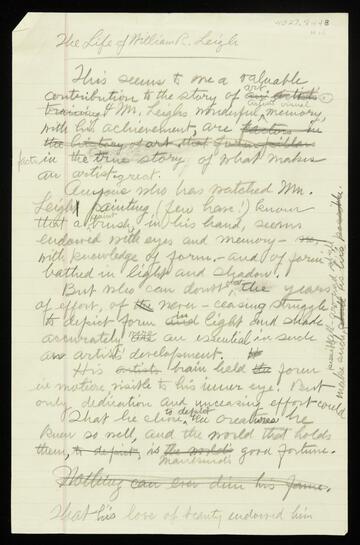 4027.8448
The Life of William R. Leigh
This seems to me a valuable
contribution to the story of an artist's art
training Mr. Leigh's wonderful memory,
with his achievement, are factors in
the history of art that
facts in the true story of what makes
an artist great.
Anyone who has watched Mr.
Leigh painting (few have!) knows
that a paint brush, in his hand, seems
endowed with eyes and memory —
with knowledge of form — and of form
bathed in light and shadow.
But who can doubt that the years
of effort, of the never-ceasing struggle
to depict form in light and shade
accurately are an essential in such
an artist's development.
His artist's brain held the form
in motion, visible to his inner eye. But
only dedication and unceasing effort could
make such
That he chose to depict the creatures he
knew so well, and the world that holds
them, to depict, is the world's good fortune.
mankind's
Nothing can ever dim his fame.
That his love of beauty endowed him